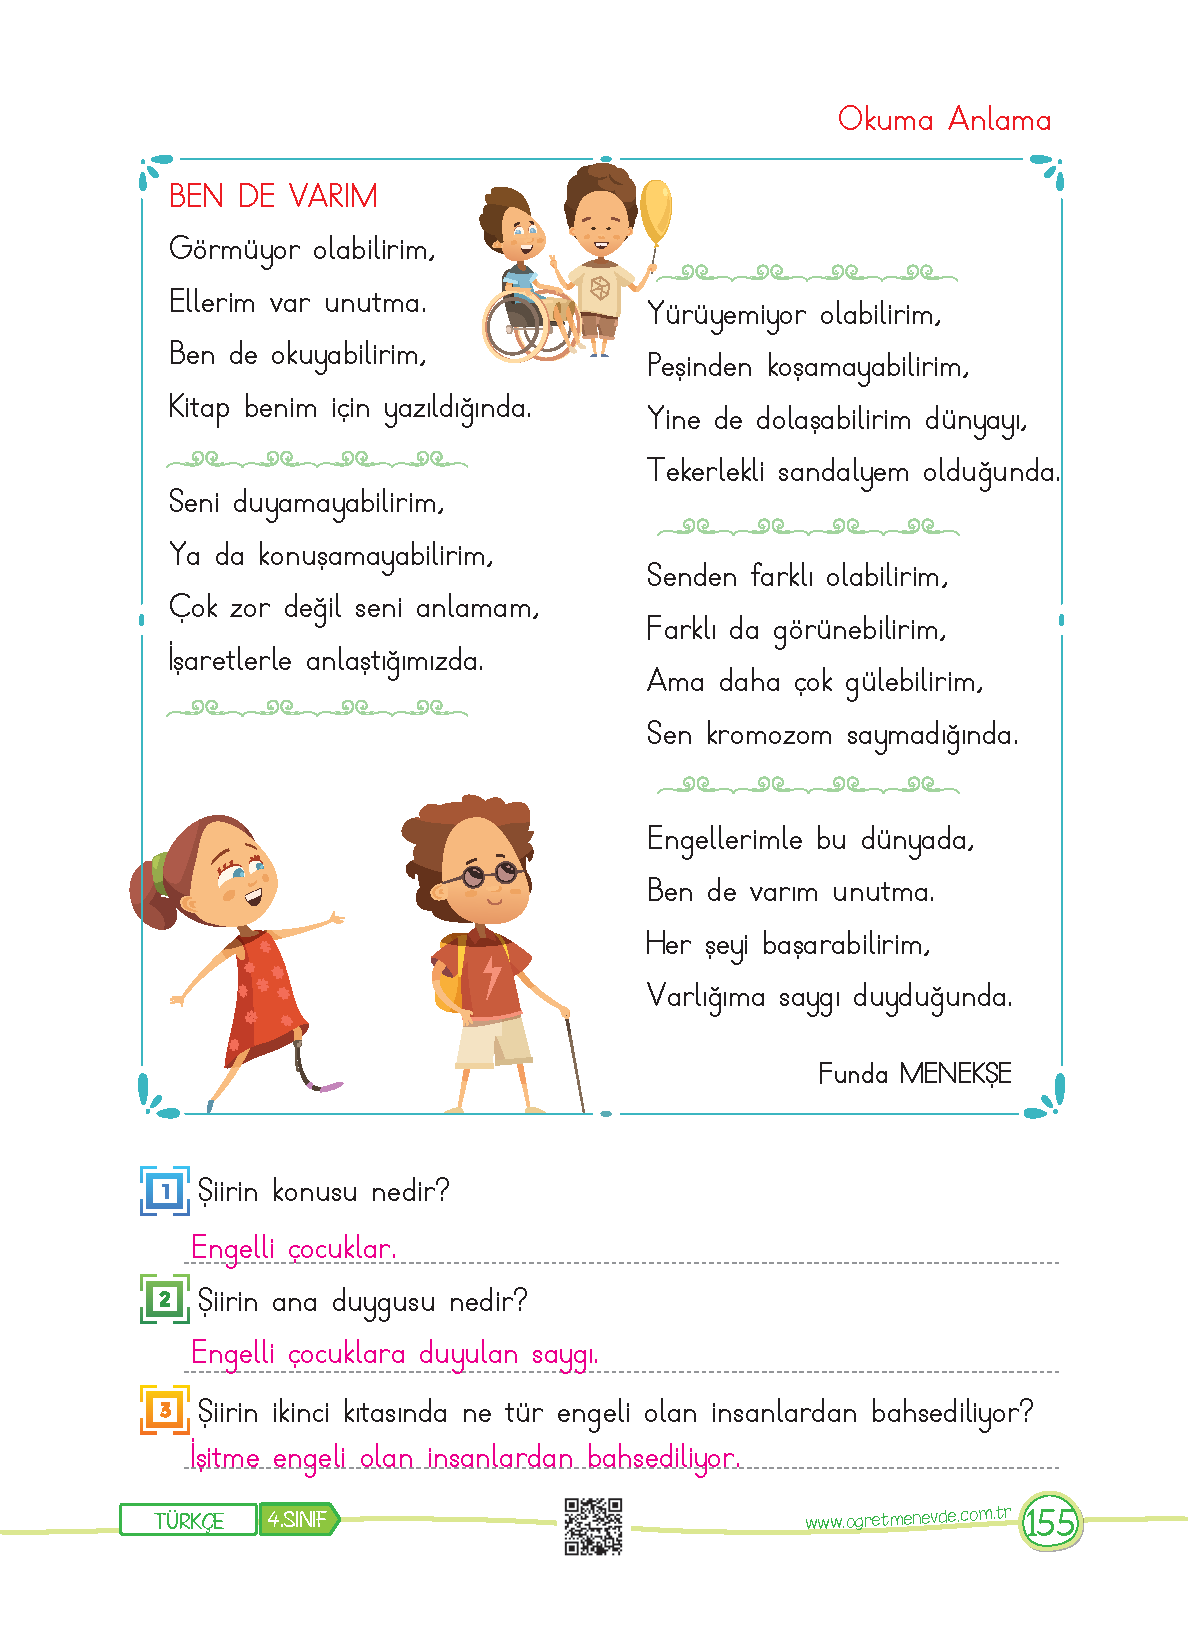 Okuma Anlama
BEN DE VARIM
Görmüyor olabilirim,
Ellerim var unutma.
Ben de okuyabilirim,
Kitap benim için yazıldığında.
Seni duyamayabilirim,
Ya da konuşamayabilirim,
Çok zor değil seni anlamam,
İşaretlerle anlaştığımızda.
Yürüyemiyor olabilirim,
Peşinden koşamayabilirim,
Yine de dolaşabilirim dünyayı,
Tekerlekli sandalyem olduğunda.
Senden farklı olabilirim,
Farklı da görünebilirim,
Ama daha çok gülebilirim,
Sen kromozom saymadığında.
Engellerimle bu dünyada,
Ben de varım unutma.
Her şeyi başarabilirim,
Varlığıma saygı duyduğunda.
Funda MENEKŞE
1 Şiirin konusu nedir?
Engelli çocuklar.
2 Şiirin ana duygusu nedir?
Engelli çocuklara duyulan saygı.
3 Şiirin ikinci kıtasında ne tür engeli olan insanlardan bahsediliyor?
İşitme engeli olan insanlardan bahsediliyor.
TÜRKÇE 4.SINIF www.ogretmenevde.com.tr 155